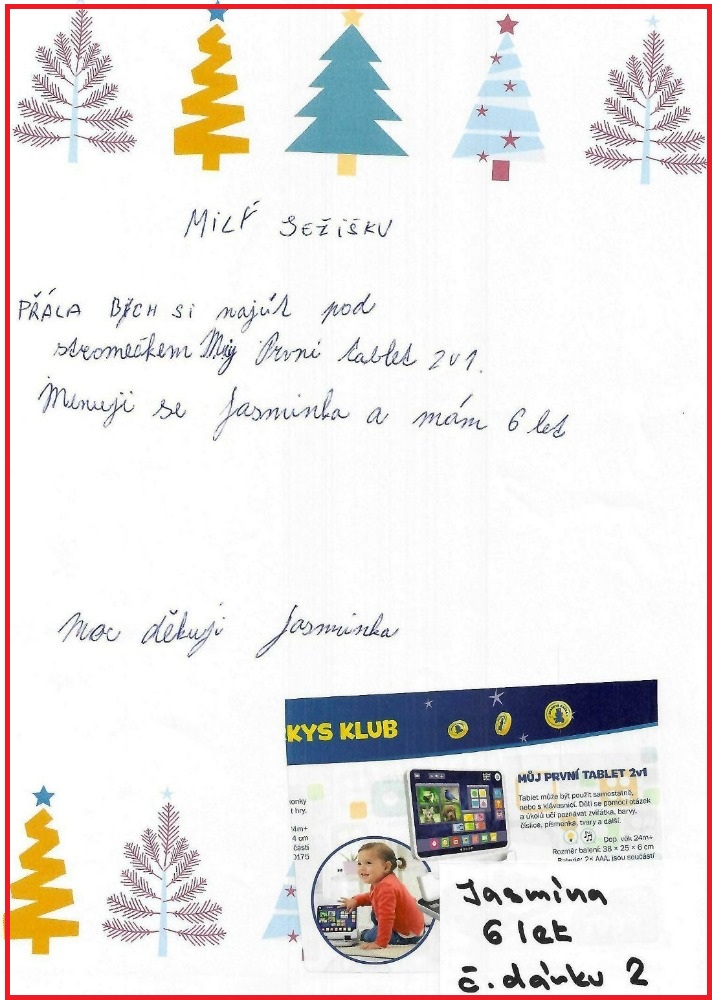 MILÝ JEŽÍŠKU
PŘÁLA BYCH SI najít pod
stromečkem Můj První tablet 2v1.
Menuji se Jasminka a mám 6 let
Moc děkuji Jasminka
KYS KLUB
MŮJ PRVNÍ TABLET 2v1
Tablet může být použit samostatně,
nebo s klávesnicí. Děti se pomocí otázek
a úkolů učí poznávat zvířátka, barvy,
číslice, písmenka, tvary a další.
Dop. věk 24m+
Rozměr balení: 38 × 25 × 6 cm
Baterie: 2× AAA, jsou součástí
onky
t hry.
4m+
4 cm
částí
0175
Jasmína
6 let
č. dárku 2